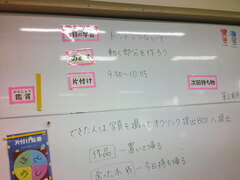 トントンつないで
動く部分を作ろう
片付け 9:50~10:05
かんしょう
鑑賞
次回持ち物
できた人は、写真を撮ってオクリンク提出BOXへ提出
作品 …置いて帰る
余った木 …今日持ち帰る
片付け当番